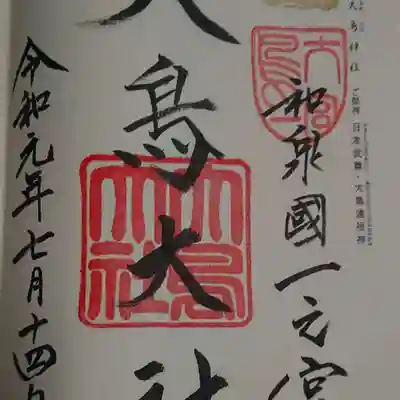 大鳥神社 ご祭神 日本武尊・大鳥連祖神
和泉國一之宮
大鳥大社
大鳥大社
令和元年七月十四日